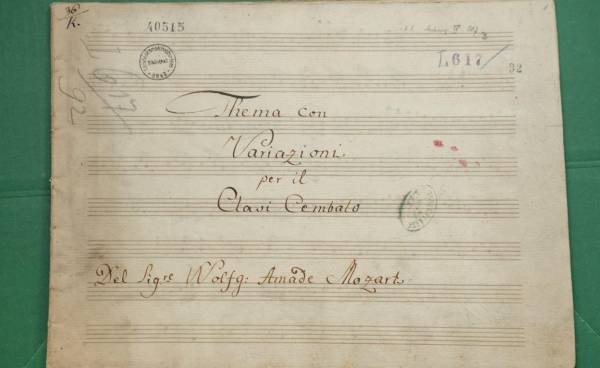 36/K.
40515
L 617/
92
L 617/
32
Thema con
Variazioni
per il
Clavi Cembalo
Del Sigre Wolfg: Amade Mozart